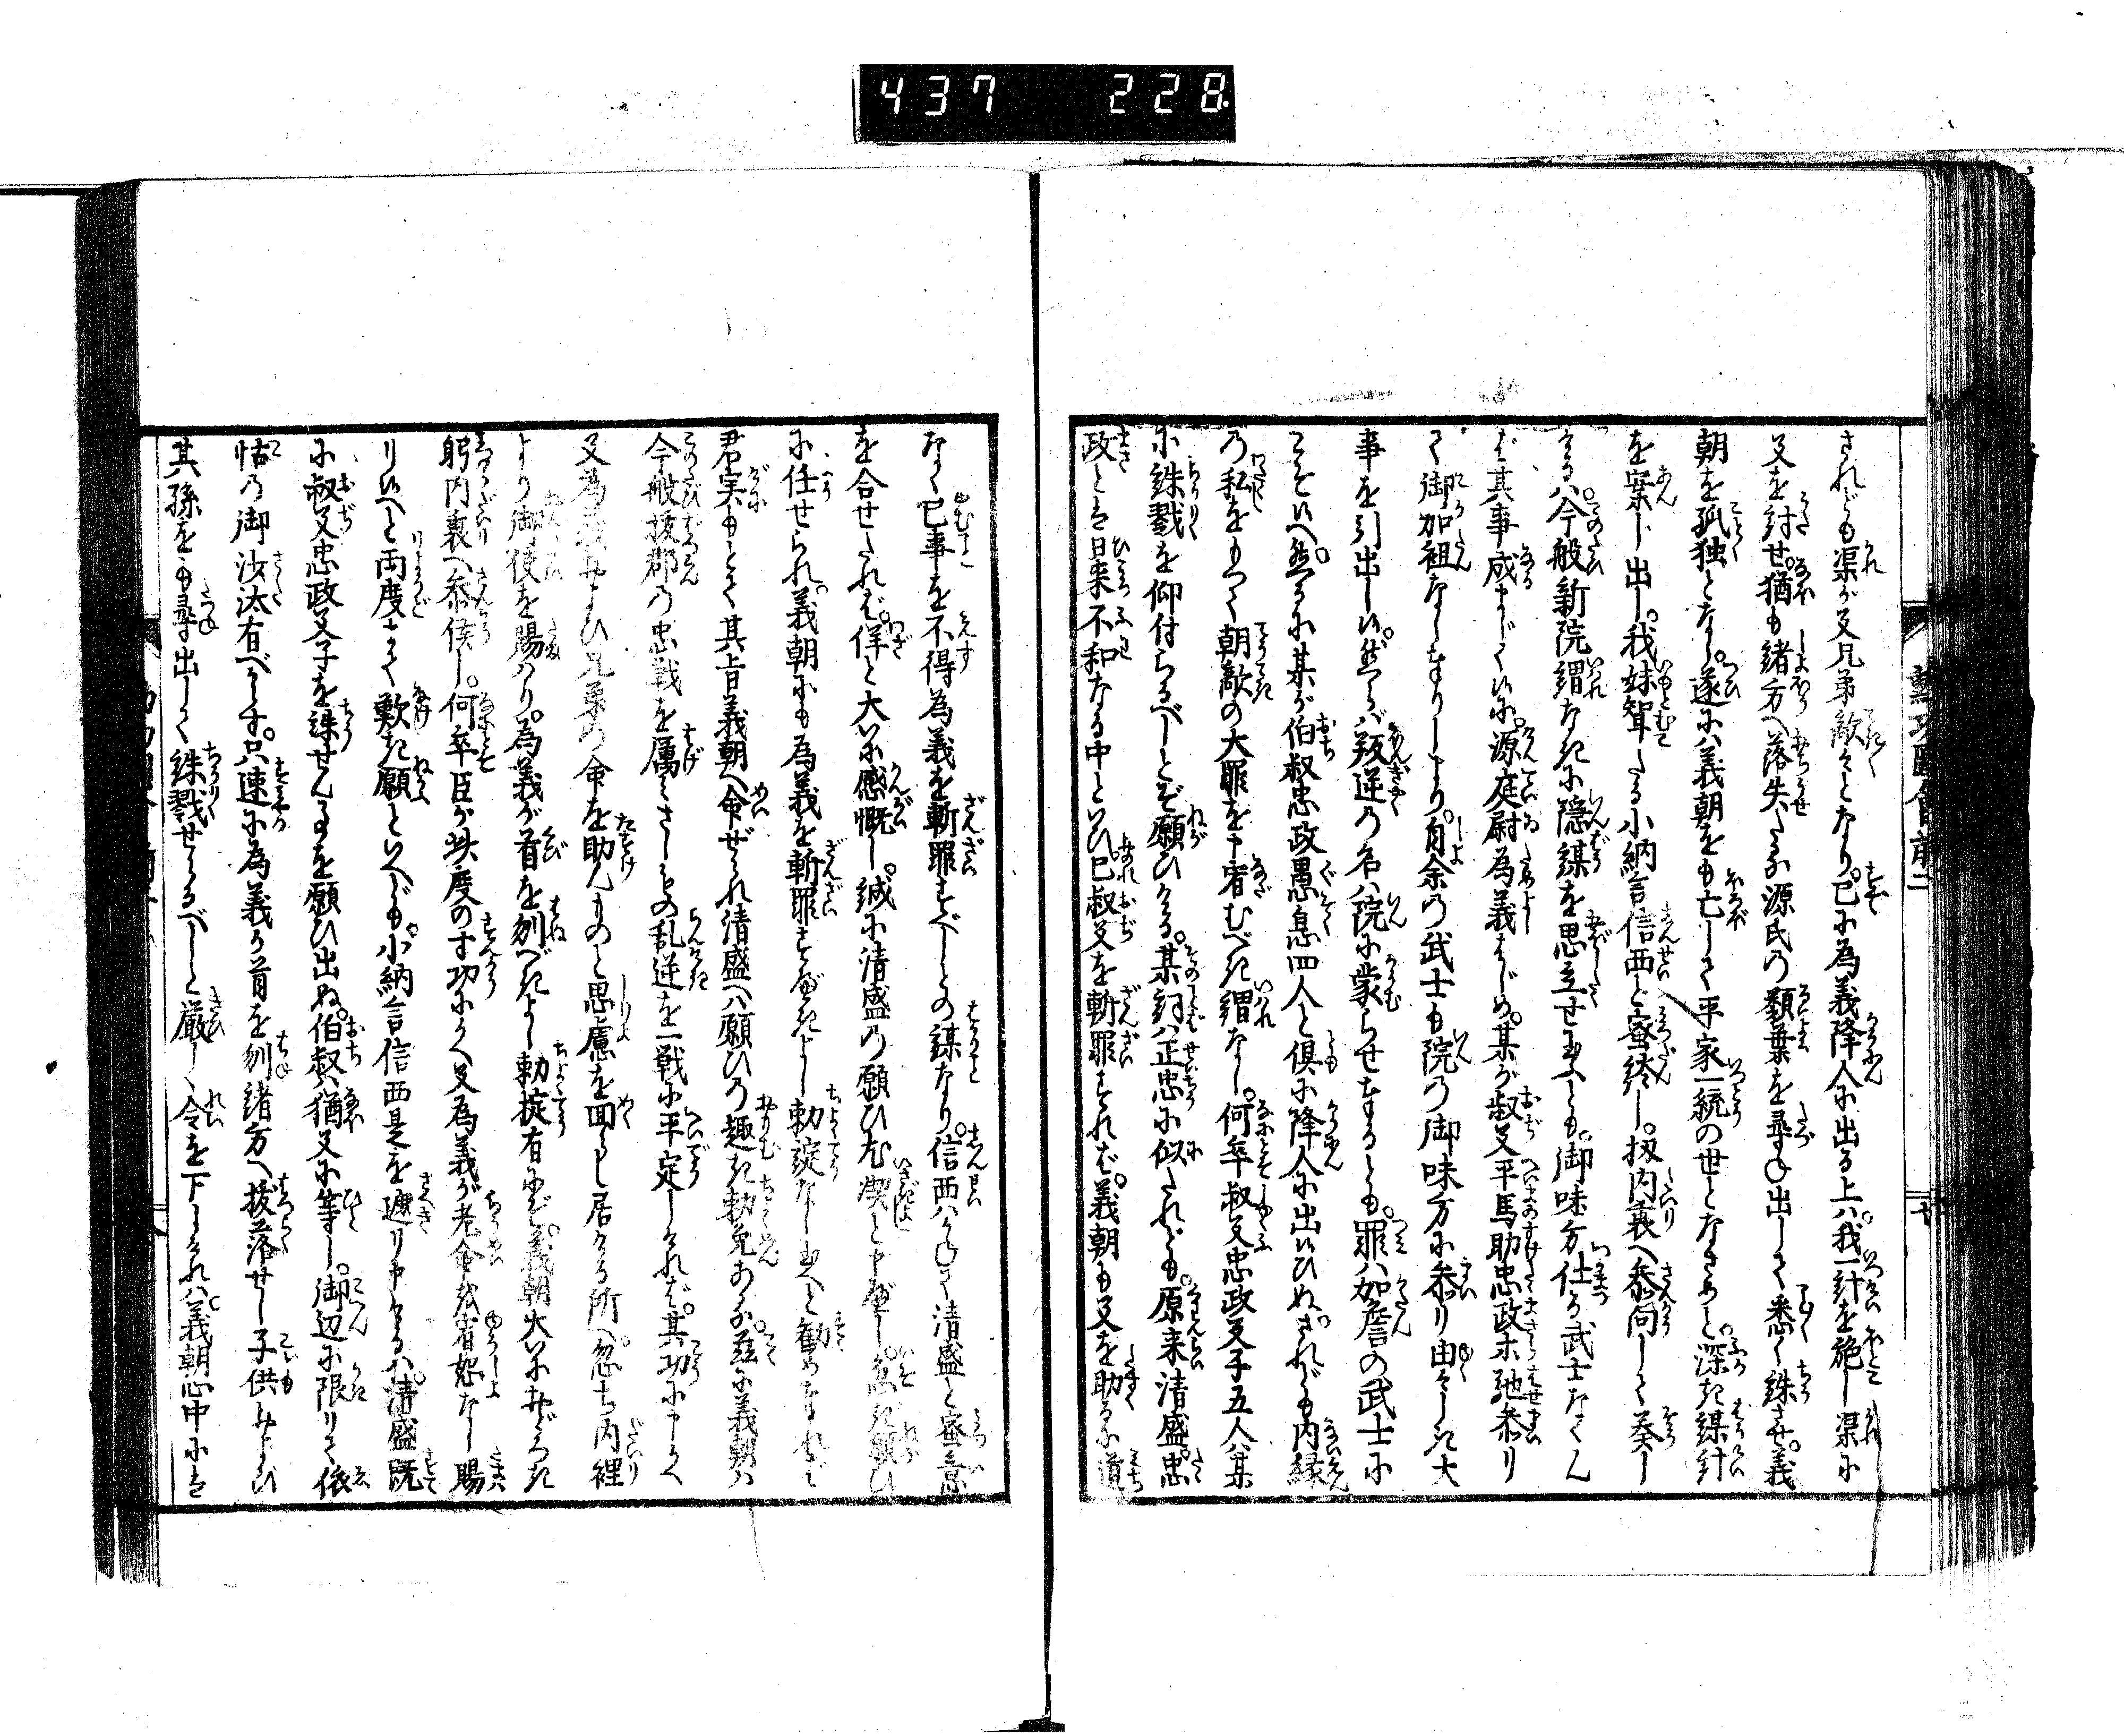 437 228
されども渠が父兄弟敵々となり。已に為義降人に出る上ハ。我一計を施し渠に
父を討せ。猶も緒方へ落失たる源氏の類葉を尋ね出して悉く誅させ。義
朝を孤独となし。遂にハ義朝をも亡して平家一統の世となさめと。深き謀計
を案じ出し。我妹聟たる小納言信西と密終し。扨内裏へ参向して奏し
けるハ。今般新院謂なきに隠謀を思立せ玉へども。御味方仕る武士なくん
ば其事成まじく候に。源庭尉為義はじめ。某が叔父平馬助忠政ホ馳参り
て御加祖なしまゐりしより。自余の武士も院の御味方に参り由々しき大
事を引出し候。然らバ叛逆の名ハ院に蒙らせまゐるとも。罪ハ加詹の武士に
こそ候へ。然るに某が伯叔忠政愚息四人と倶に降人に出候ひぬ。されども内縁
の私をもつて朝敵の大罪を申宥むべき謂なし。何卒叔父忠政父子五人ハ某
に誅戮を仰付らるべしとぞ願ひける。某詞ハ正忠に似たれども。原来清盛。忠
政とは日来不和なる中といひ。己叔父を斬罪すれば。義朝も父を助るに道
なく已事を不得為義を斬罪すべしとの謀なり。信西ハかねて清盛と密意
を合せたれば。佯と大いに感慨し。誠に清盛の願ひ尤潔と申べし。急ぎ願ひ
に任せられ。義朝にも為義を斬罪すべきよし勅諚なし玉へと勧めまゐれバ
君実もとて其上日義朝へ命ぜられ清盛へハ願ひの趣き勅免ありけり。茲に義朝ハ
今般抜郡の忠戦を厲しさしもの乱逆を一戦に平定しければ。其功に申かへ
父為義および兄弟の命を助んものと思慮を回らし居ける所へ。忽ち内裡
より御使を賜ハり。為義が首を刎べきよし勅掟有にぞ。義朝大いにおどろき
躬内裏へ参候し。何卒臣が此度の寸功にかへ父為義が老命を宥恕なし賜
り候へと両度まで歎き願といへども。小納言信西是を遮り申けるハ。清盛既
に叔父忠政父子を誅せんことを願ひ出ぬ。伯叔ハ猶父に等し。御辺に限りて依
怙の御沙汰有べからず。只速に為義が首を刎緒方へ抜落せし子供および
其孫をも尋出して誅戮せらるべしと厳しく令を下しけれバ。義朝心中には